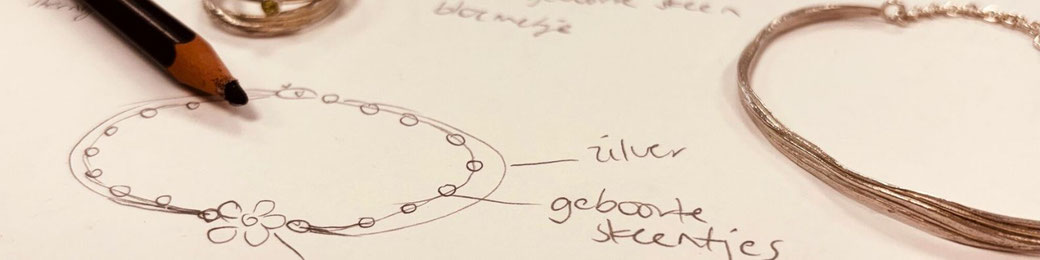 geboorte steen
bloemetje
zilver
geboorte
steentjes